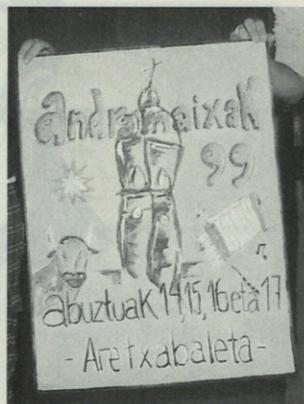 andramaixak
99
abuztuak 14, 15, 16 eta 17
- Aretxabaleta -